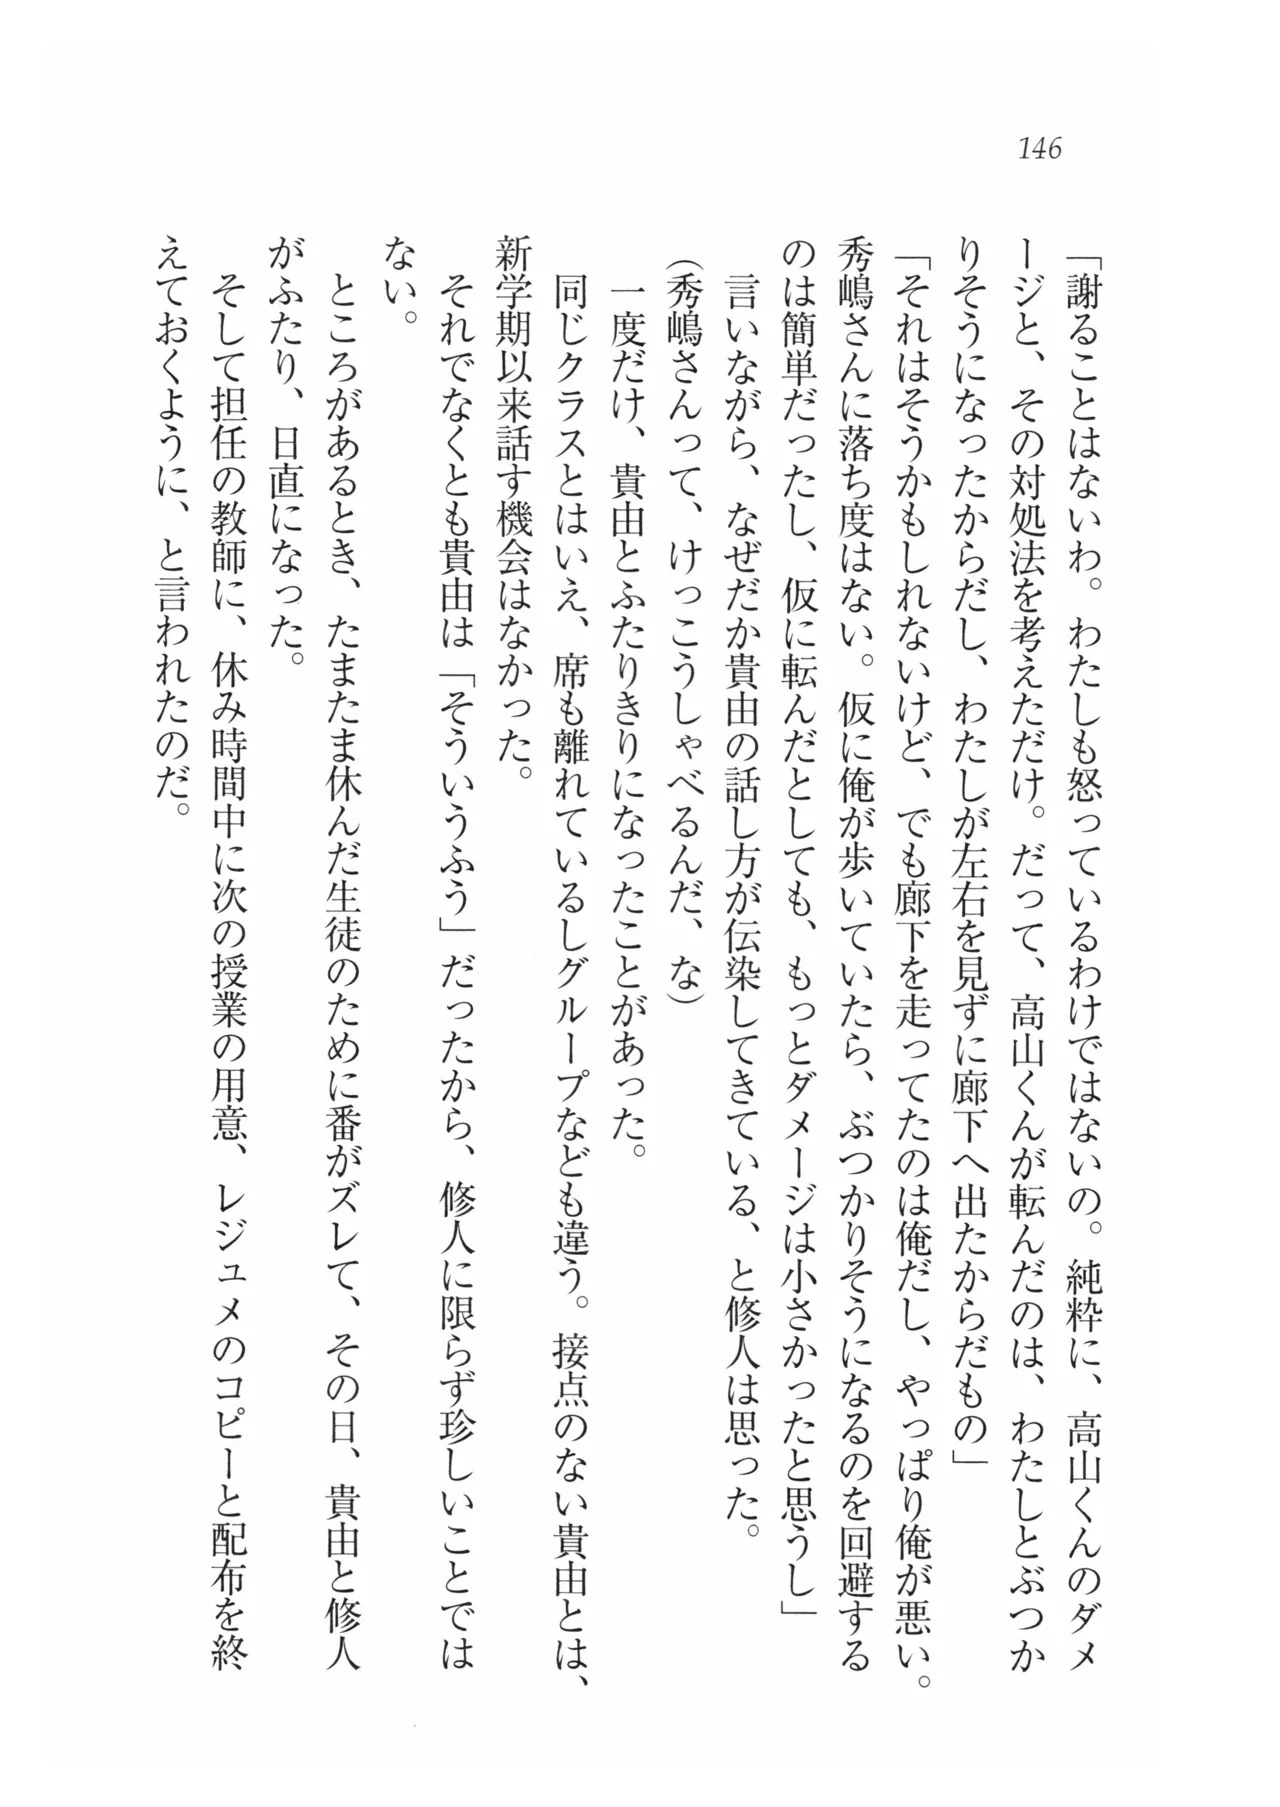 146
「謝ることはないわ。わたしも怒っているわけではないの。純粋に、高山くんのダメ
ージと、その対処法を考えただけ。だって、高山くんが転んだのは、わたしとぶつか
りそうになったからだし、わたしが左右を見ずに廊下へ出たからだもの」
「それはそうかもしれないけど、でも廊下を走ってたのは俺だし、やっぱり俺が悪い。
秀嶋さんに落ち度はない。仮に俺が歩いていたら、ぶつかりそうになるのを回避する
のは簡単だったし、仮に転んだとしても、もっとダメージは小さかったと思うし」
言いながら、なぜだか貴由の話し方が伝染してきている、と修人は思った。
(秀嶋さんって、けっこうしゃべるんだ、な)
一度だけ、貴由とふたりきりになったことがあった。
同じクラスとはいえ、席も離れているしグループなども違う。接点のない貴由とは、
新学期以来話す機会はなかった。
それでなくとも貴由は「そういうふう」だったから、修人に限らず珍しいことでは
ない。
ところがあるとき、たまたま休んだ生徒のために番がズレて、その日、貴由と修人
がふたり、日直になった。
そして担任の教師に、休み時間中に次の授業の用意、レジュメのコピーと配布を終
えておくように、と言われたのだ。